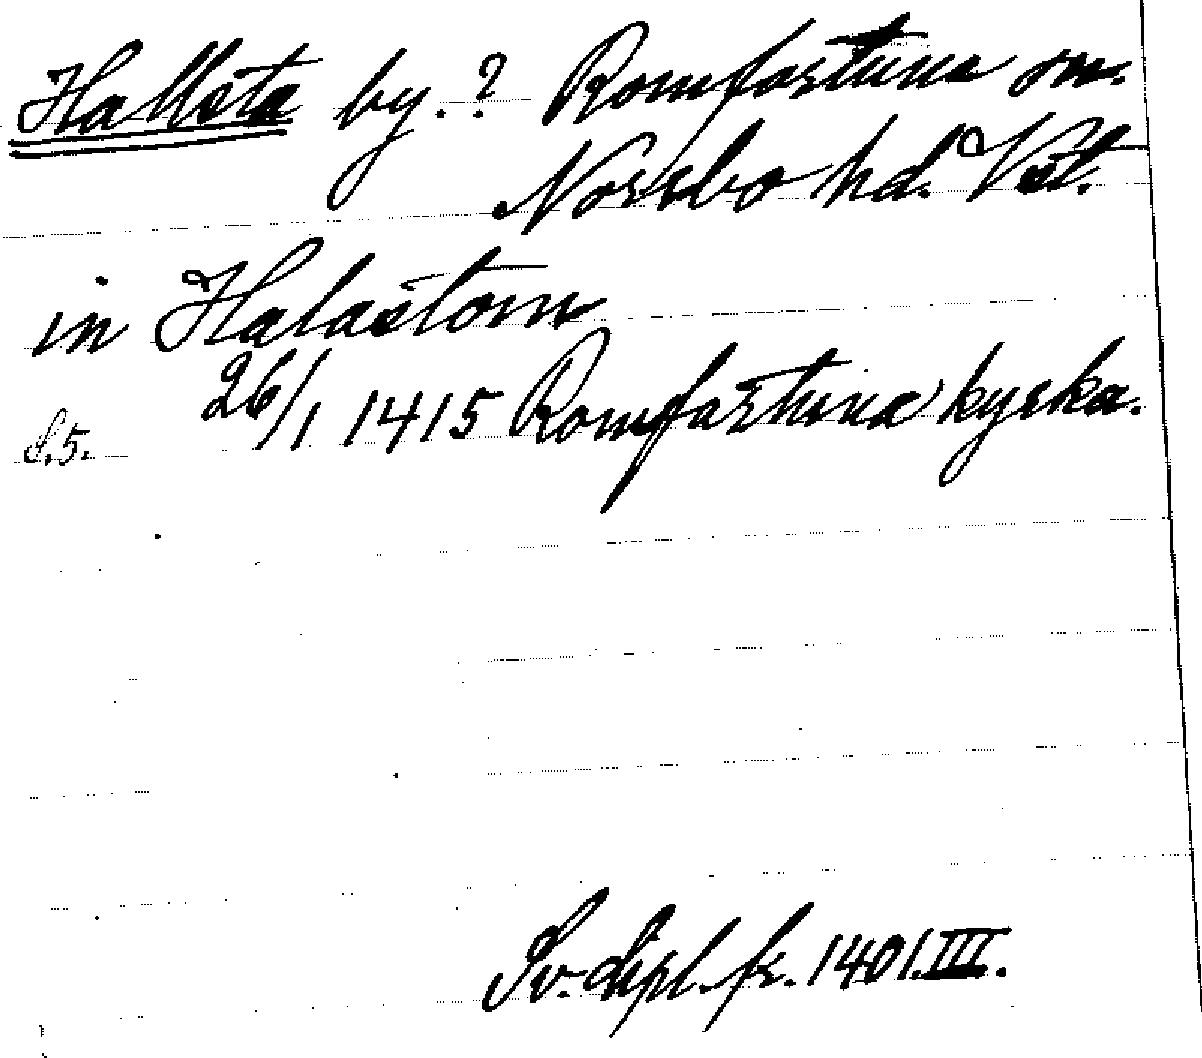 Hallsta by.? Romfartuna sn.
Norrbo hd. Vstl.
in Halastom
26/1 1415 Romfartuna kyrka.
S.5.
Sv. dipl. fr. 1401. III.